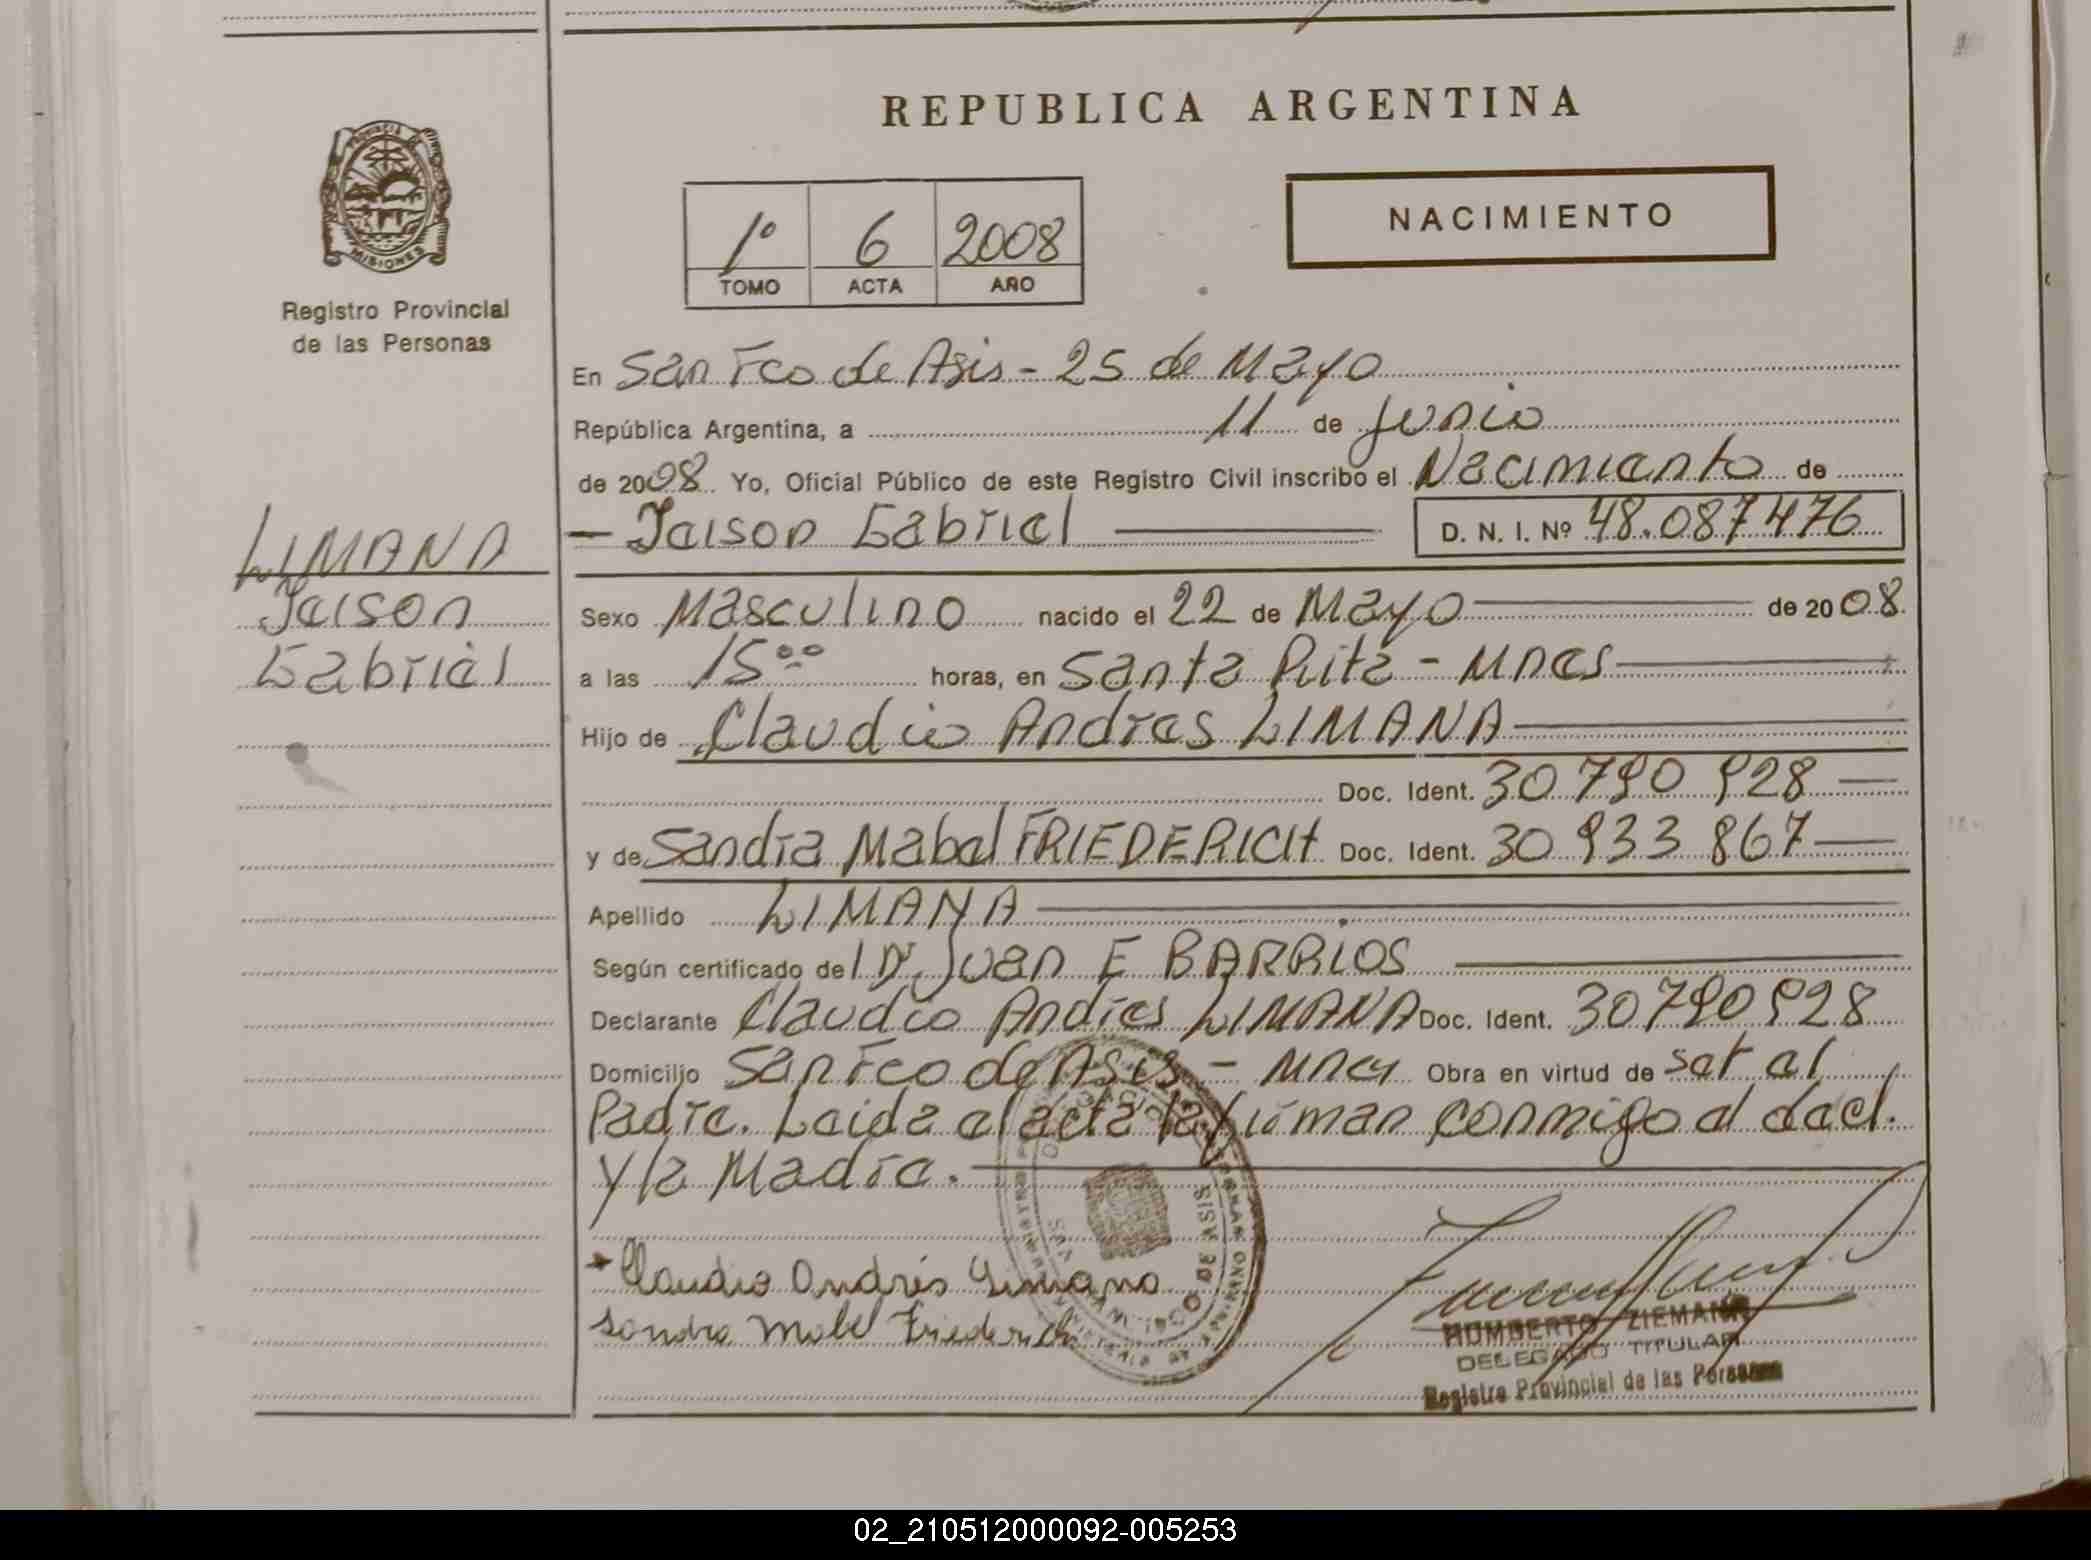 REPUBLICA ARGENTINA
PROVINCIA DE
MISIONES
Registro Provincial
de las Personas
1º 6 2008
TOMO ACTA AÑO
NACIMIENTO
En San Fco de Asis - 25 de Mayo
República Argentina, a 11 de Junio
de 2008. Yo, Oficial Público de este Registro Civil inscribo el Nacimiento de
- Jeison Gabriel D. N. I. Nº 48.087476
LIMANA
Jeison
Gabriel
Sexo Masculino nacido el 22 de Mayo de 2008.
a las 15 00 horas, en Santa Rita - Mnes
Hijo de Claudio Andres LIMANA
Doc. Ident. 30 790 928
y de Sandra Mabel FRIEDERICH Doc. Ident. 30 933 867
Apellido LIMANA
Según certificado del Dr Juan E BARRIOS
Declarante Claudio Andres LIMANA Doc. Ident. 30790928
Domicilio San Fco de Asis - Mnes Obra en virtud de ser el
Padre. Leida el acta la firman conmigo el decl.
y la Madre.
Claudio Andrés Limana
Sandra Mabel Friederich
HUMBERTO ZIEMANN
DELEGADO TITULAR
Registro Provincial de las Personas
02_210512000092-005253